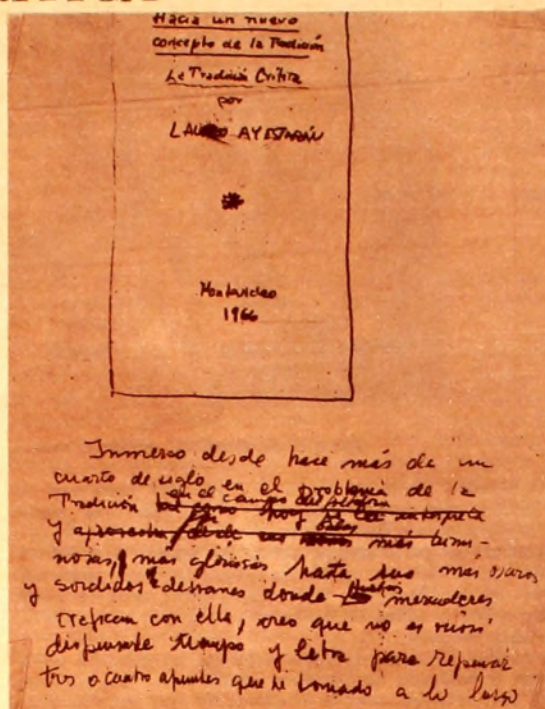 Hacia un nuevo
concepto de la Tradición
La Tradición Crítica
por
LAURO AYESTARÁN
Montevideo
1966
Inmerso desde hace más de un
cuarto de siglo en el problema de la
en el campo del
Tradición tal como hoy se interpreta
y desde sus más lumi-
nosas, más gloriosas hasta sus más oscuros
y sordidos desvanes donde mercaderes
trafican con ella, creo que no es
tiempo y letra para repensar
tres o cuatro apuntes que he tomado a lo largo